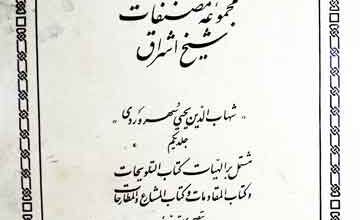 مجموعهٔ مصنفات
شیخ اشراق
"شهاب الدین یحیی سهروردی"
جلد یکم
مشتمل بر الهیات کتاب التلویحات
وکتاب المقاومات وکتاب المشارع والمطارحات